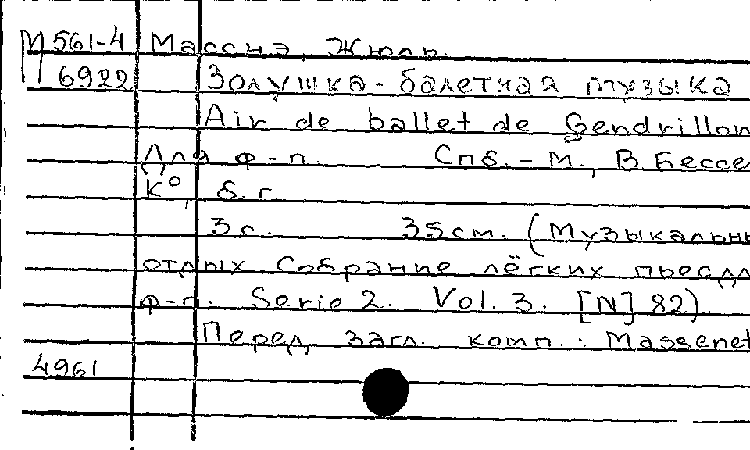 М 561-4 Массиэ, Жюль.
6922 Золушка - балетная музыка
Air de ballet de Gendrillon
Для ф-п. Спб. - М., В. Бессе
К°, б. г.
3 с. 35 см. (Музыкальны
отдых Собрание лёгких пьес дл
ф-п. Serie 2. Vol. 3. [N] 82)
Перед загл. комп.: Massenet
4961